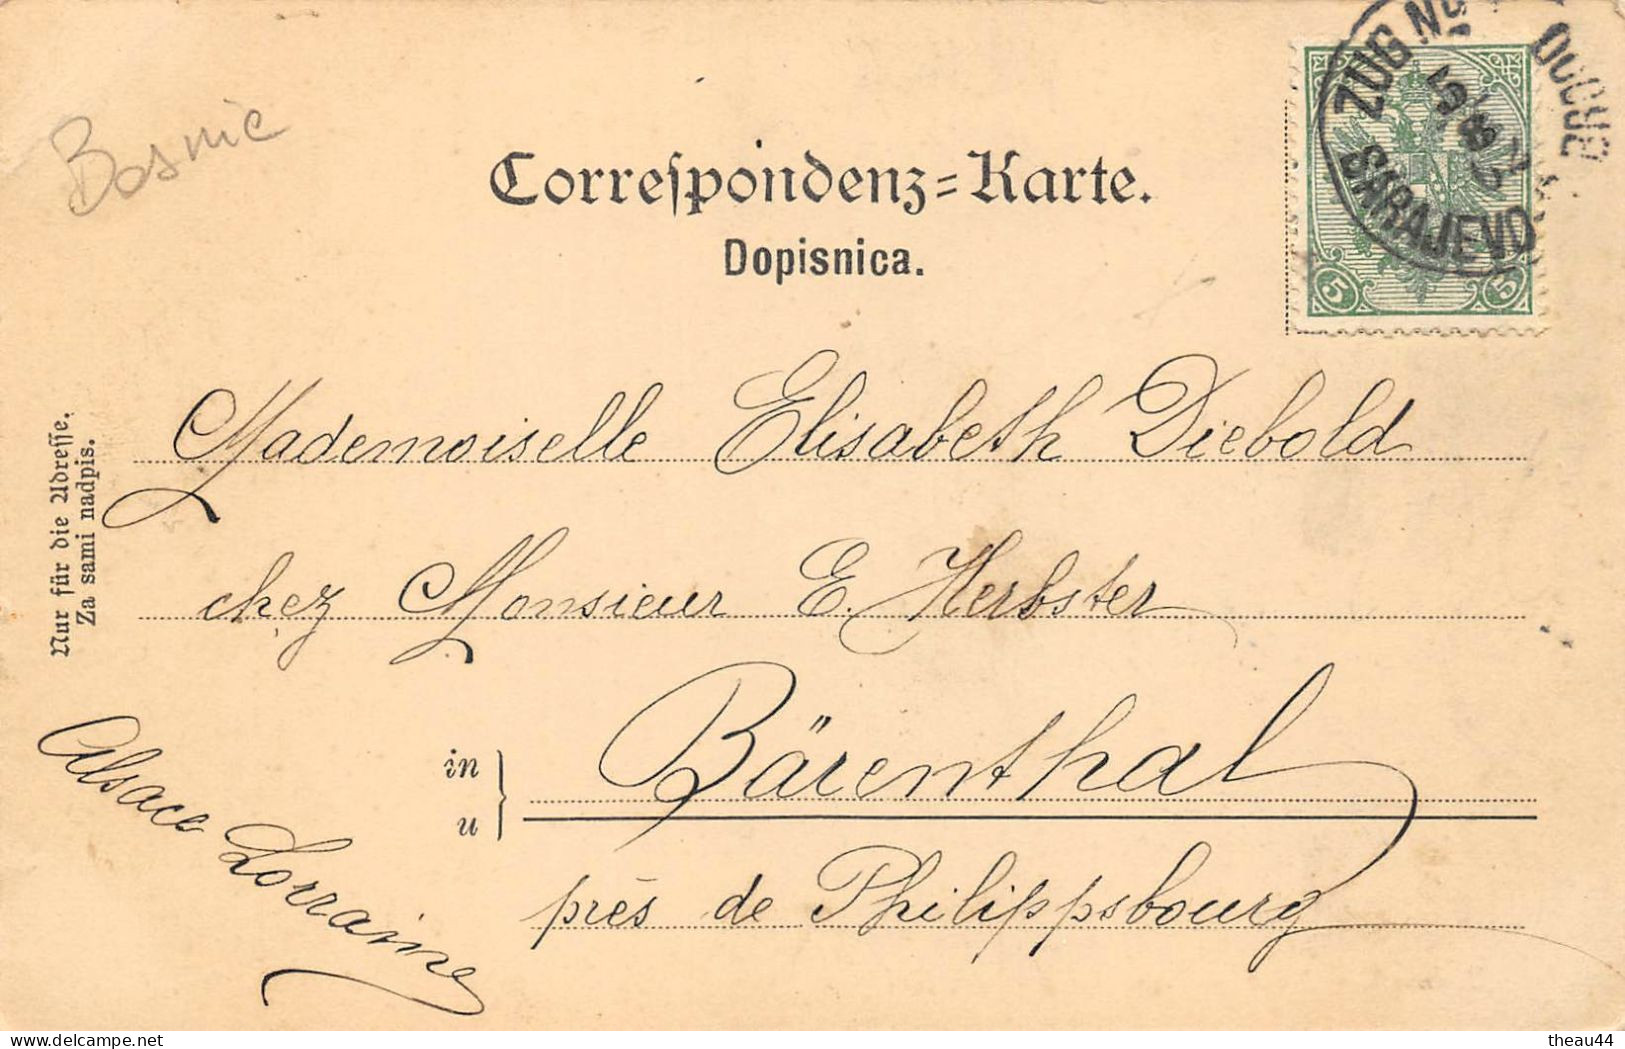 Bosnie
Correspondenz-Karte.
Dopisnica.
ZUG No
SARAJEVO
5 5
Nur für die Adresse.
Za sami nadpis.
Mademoiselle Elisabeth Diebold
chez Monsieur E. Herbster
in
u
Bärenthal
près de Philippsbourg
Alsace Lorraine
theau44